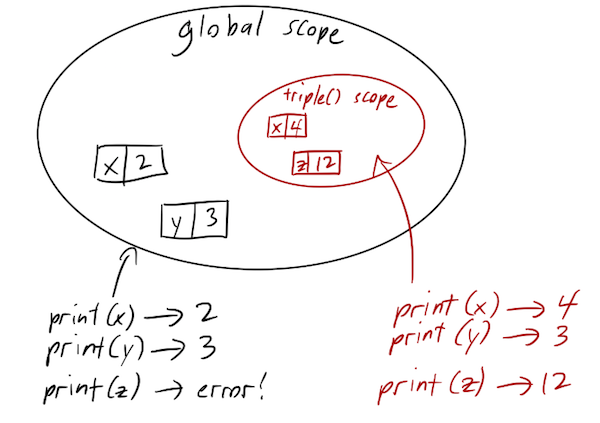 global scope
triple() scope
x 4
z 12
x 2
y 3
print(x) → 2
print(y) → 3
print(z) → error!
print(x) → 4
print(y) → 3
print(z) → 12